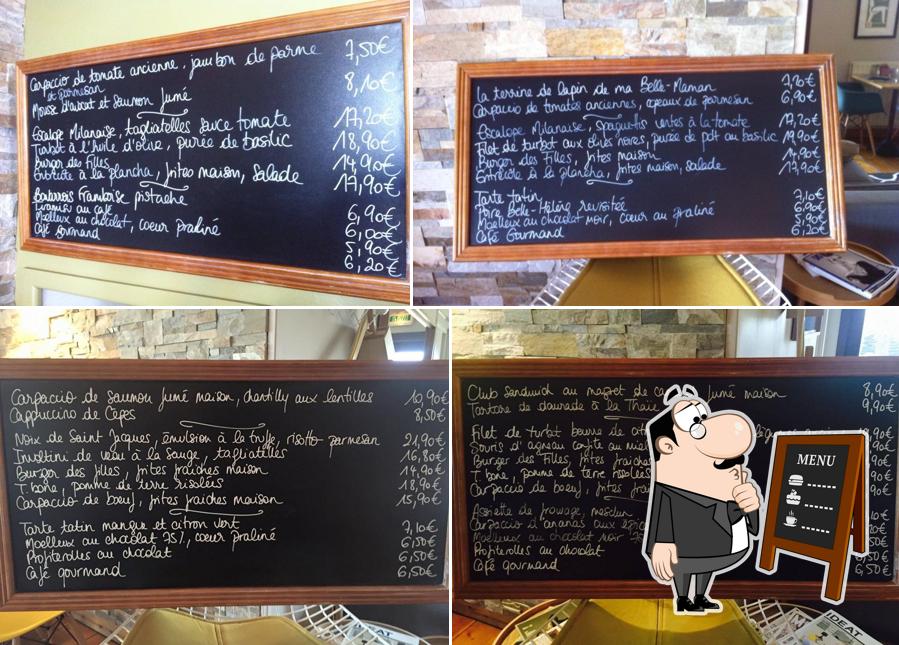 Carpaccio de tomate ancienne, jambon de parme 7,50€
et parmesan
Mousse d'avocat et saumon fumé 8,10€
Escalope Milanaise, tagliatelles sauce tomate 17,20€
Turbot à l'huile d'olive, purée de basilic 18,90€
Burger des filles 14,90€
Entrecôte à la plancha, frites maison, salade 17,90€
Bavarois Framboise pistache 6,90€
Tiramisu au café 6,00€
Moelleux au chocolat, coeur praliné 5,90€
Café gourmand 6,20€
La terrine de lapin de ma Belle-Maman 7,20€
Carpaccio de tomates anciennes, copeaux de parmesan 6,90€
Escalope Milanaise, spaguettis vertes à la tomate 17,20€
Filet de turbot aux olives noires, purée de pdt au basilic 19,90€
Burger des Filles, frites maison 14,90€
Entrecôte à la plancha, frites maison, salade 17,90€
Tarte tatin 7,10€
Poire Belle-Hélène revisitée 6,90€
Moelleux au chocolat noir, coeur au praliné 5,90€
Café Gourmand 6,20€
Carpaccio de saumon fumé maison, chantilly aux lentilles 10,90€
Cappuccino de Cèpes 8,50€
Noix de Saint Jacques, émulsion à la truffe, risotto parmesan 21,90€
Involtini de veau à la sauge, tagliatelles 16,80€
Burger des filles, frites fraiches maison 14,90€
T. bone, pomme de terre rissolées 18,90€
Carpaccio de boeuf, frites fraiches maison 15,90€
Tarte tatin mangue et citron vert 7,10€
Moelleux au chocolat 75%, coeur praliné 6,50€
Profiterolles au chocolat 6,50€
Café gourmand 6,50€
Club sandwich au magret de ca fumé maison 8,90€
Tartare de daurade à la Thaïe 9,90€
Filet de turbot
Souris d'agneau confite au miel
Burger des Filles, frites fraiches
T. bone, pomme de terre rissolées
Carpaccio de boeuf, frites
Assiette de fromage, mesclun
Carpaccio d'ananas aux
Moelleux au chocolat noir 75
Profiterolles au chocolat 6,50€
Café gourmand 6,50€
MENU
IDEAT